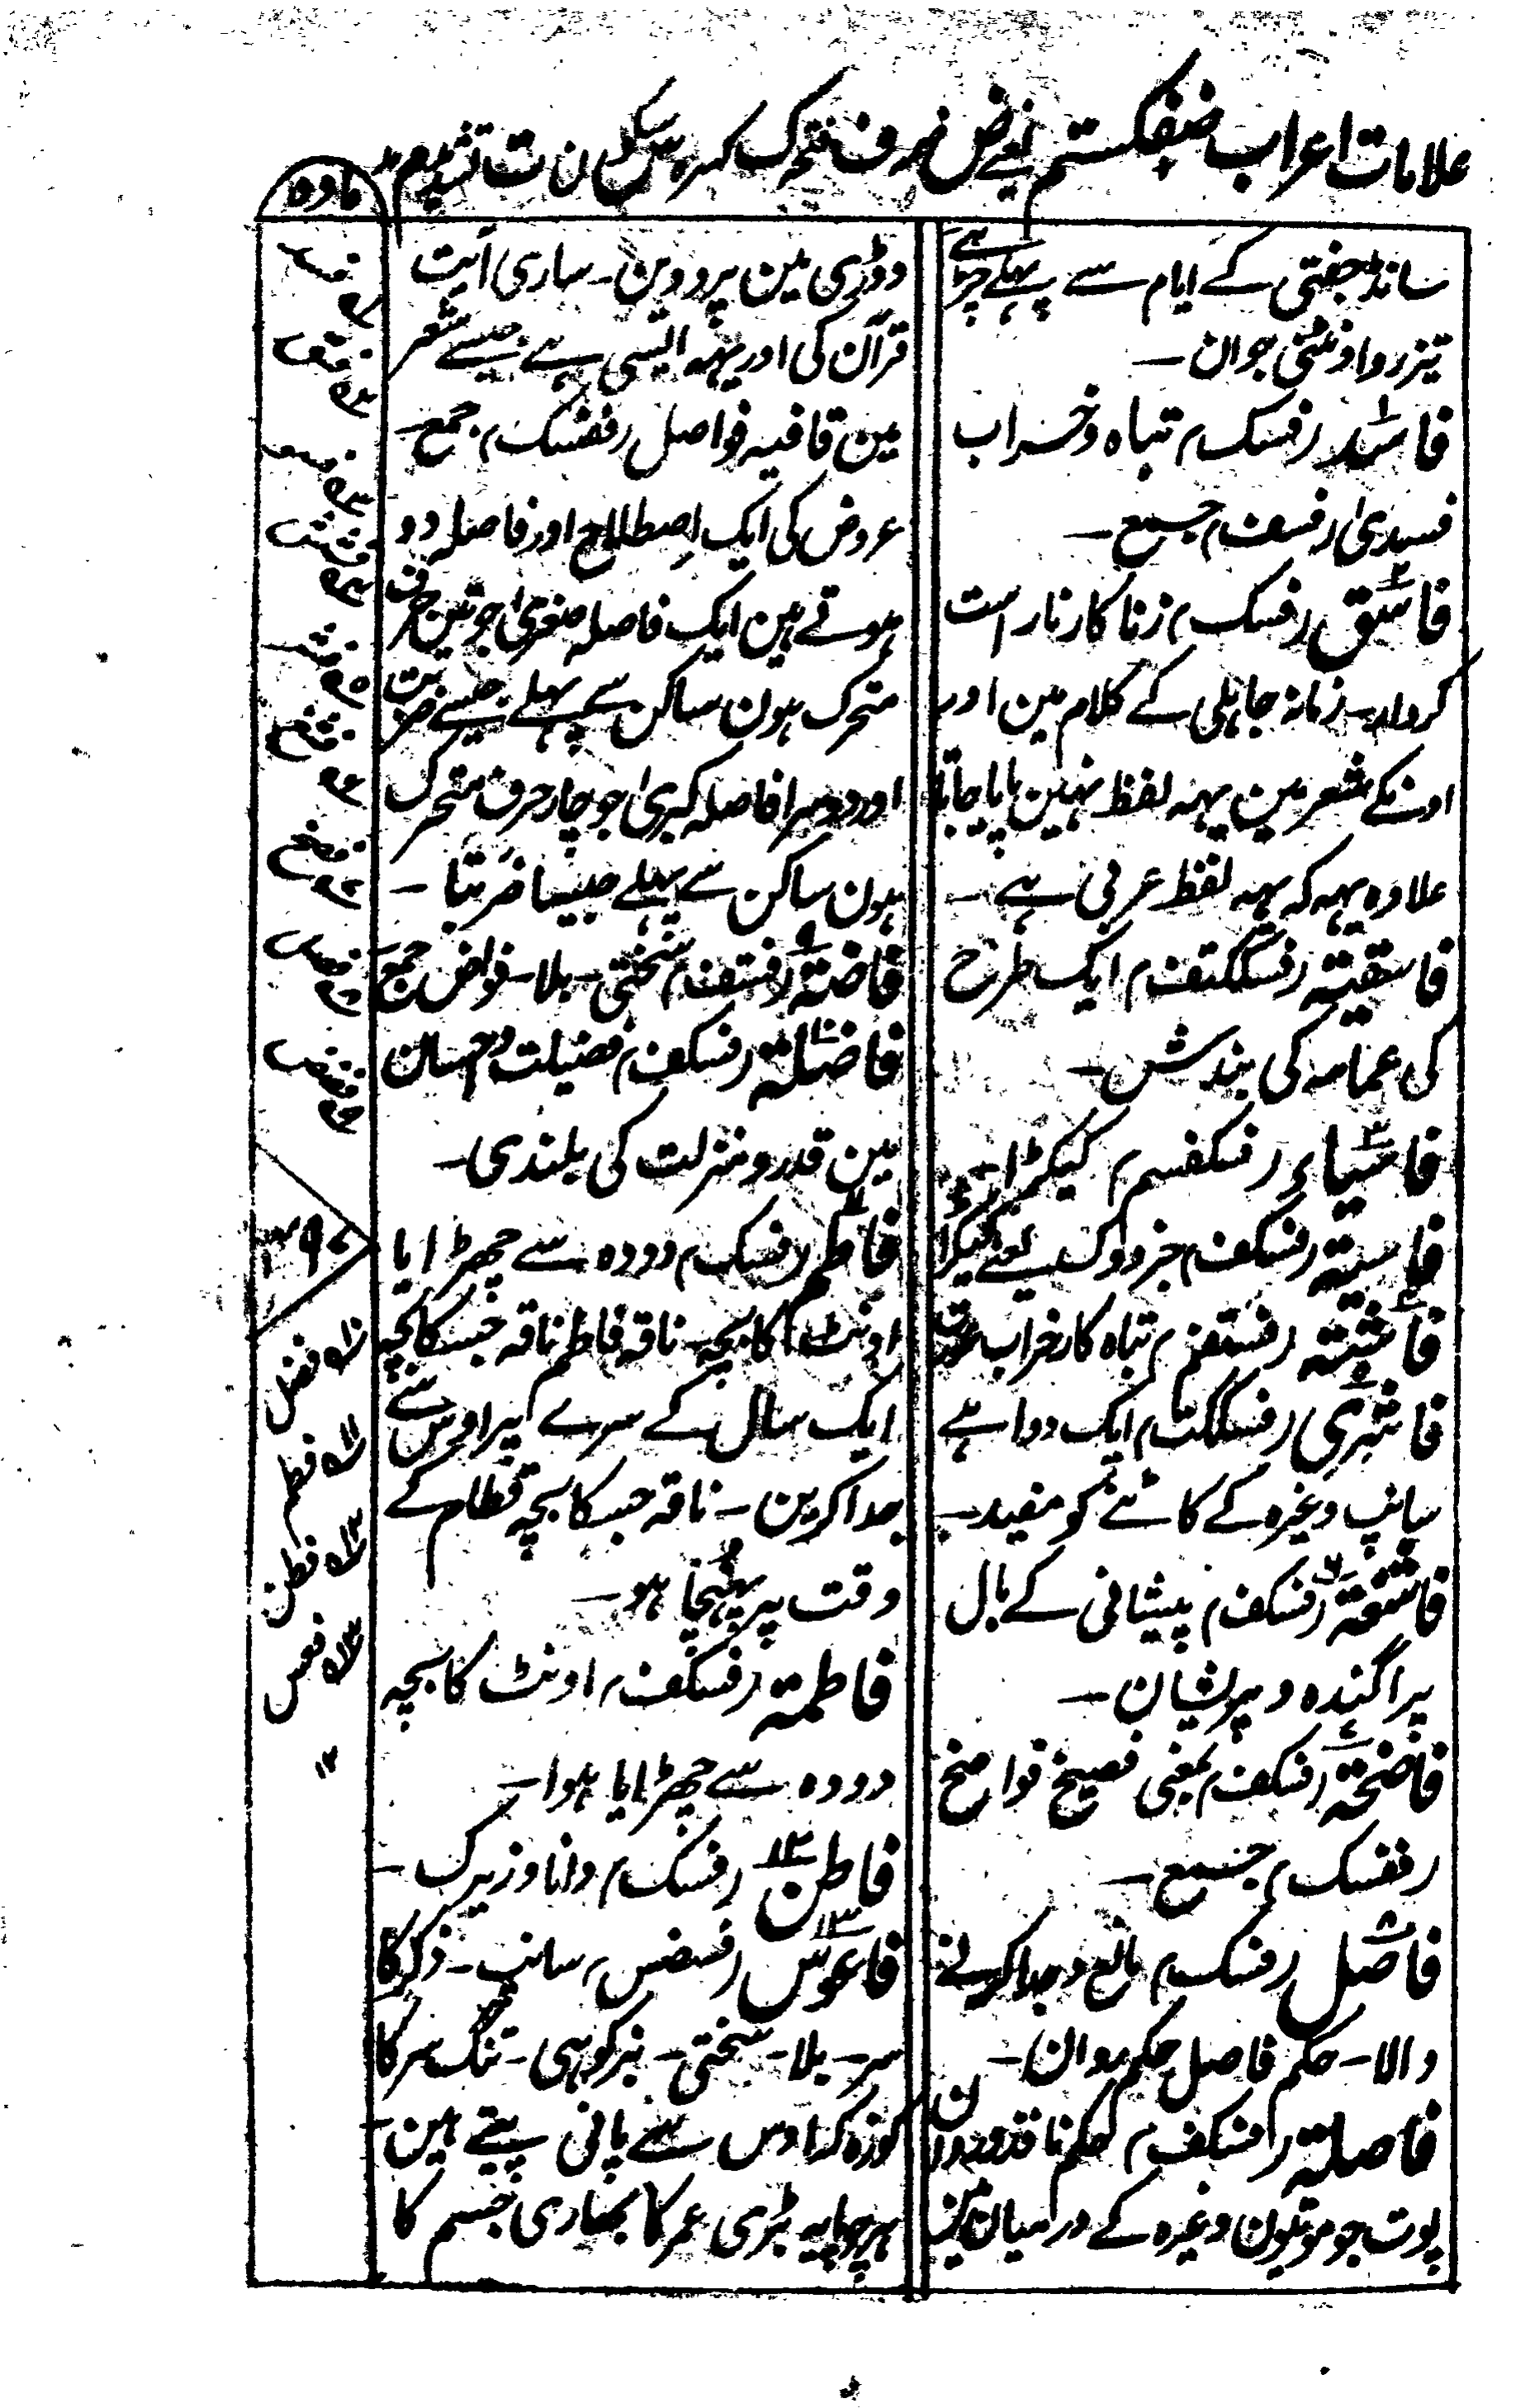 علامات اعراب ضفکستم یعنے ض ضمہ ف فتحہ ک کسرہ س سکون ت تشدید م مد
مادہ
سانڈ جفتی کے ایام سے پہلے چڑہے
تیز رو اونٹنی جوان ۔
فاسد رفسک م تباہ و خراب
فسدیٰ رفسف م جمیع ۔
فاسق رفسک م زناکار ناراست
کردار ۔ زمانہ جاہلی کے کلام مین اور
اونکے شعر مین یہہ لفظ نہین پایا جاتا
علاوہ یہہ کہ یہہ لفظ عربی ہے ۔
فاسقیتہ رفسککتف م ایک طرح
کی عمامہ کی بندش ۔
فاسیاء رفسکفسم م کیکڑا ۔
فاسیتہ رفسکف م خبزدوک یعنے کیکڑا
فاشتہ رفستف م تباہ کار خراب عورت
فاشری رفسککت م ایک دوا ہے
سانپ وغیرہ کے کاٹے کو مفید ۔
فاشغتہ رفسکف م پیشانی کے بال
پراگندہ و پریشان ۔
فاضختہ رفسکف م بمعنی فصیخ فواضخ
رففسک م جمیع ۔
فاصل رفسک م مانع و جدا کرنے
والا ۔ حکم فاصل حکم روان ۔
فاصلتہ رافسکف م حکم نافذ و روان
پوت جو موتیون وغیرہ کے درمیان مین
دوڑی مین پرووین ۔ ساری آیت
قرآن کی اور یہہ ایسی ہے جیسے شعر
مین قافیہ فواصل رففسک م جمع ۔
عروض کی ایک اصطلاح اور فاصلہ دو
ہوتے ہین ایک فاصلہ صغریٰ جو تین حرف
متحرک ہون ساکن سے پہلے جیسے ضربت
اور دوسرا فاصلہ کبریٰ جو چار حرف متحرک
ہون ساکن سے پہلے جیسا ضربتا ۔
فاضتہ رفستف م سختی ۔ بلا ۔ فواض جمع
فاضلتہ رفسکف م فضیلت و احسان
مین قدر و منزلت کی بلندی ۔
فاطم رفسک م دودہ سے چھڑایا
اونٹ کا بچہ ۔ ناقہ فاطم ناقہ جسکا بچہ
ایک سال کے سرے پر اوس سے
جدا کرین ۔ ناقہ جسکا بچہ فطام کے
وقت پر پہنچا ہو ۔
فاطمتہ رفسکف م اونٹ کا بچہ
دودہ سے چھڑایا ہوا ۔
فاطن ۱۲ رفسک م دانا و زیرک ۔
فاعوس ۱۳ رفسضس م سانپ ۔ ذکر کا
سر ۔ بلا ۔ سختی ۔ بز کوہی ۔ تنگ سر کا
کوزہ کہ اوس سے پانی پیتے ہین ۔
ہر چوپایہ بڑی عمر کا بھاری جسم کا
۱۰ فضل
۱۱ فطم
۱۲ فطن
۱۳ فعس
۱۲